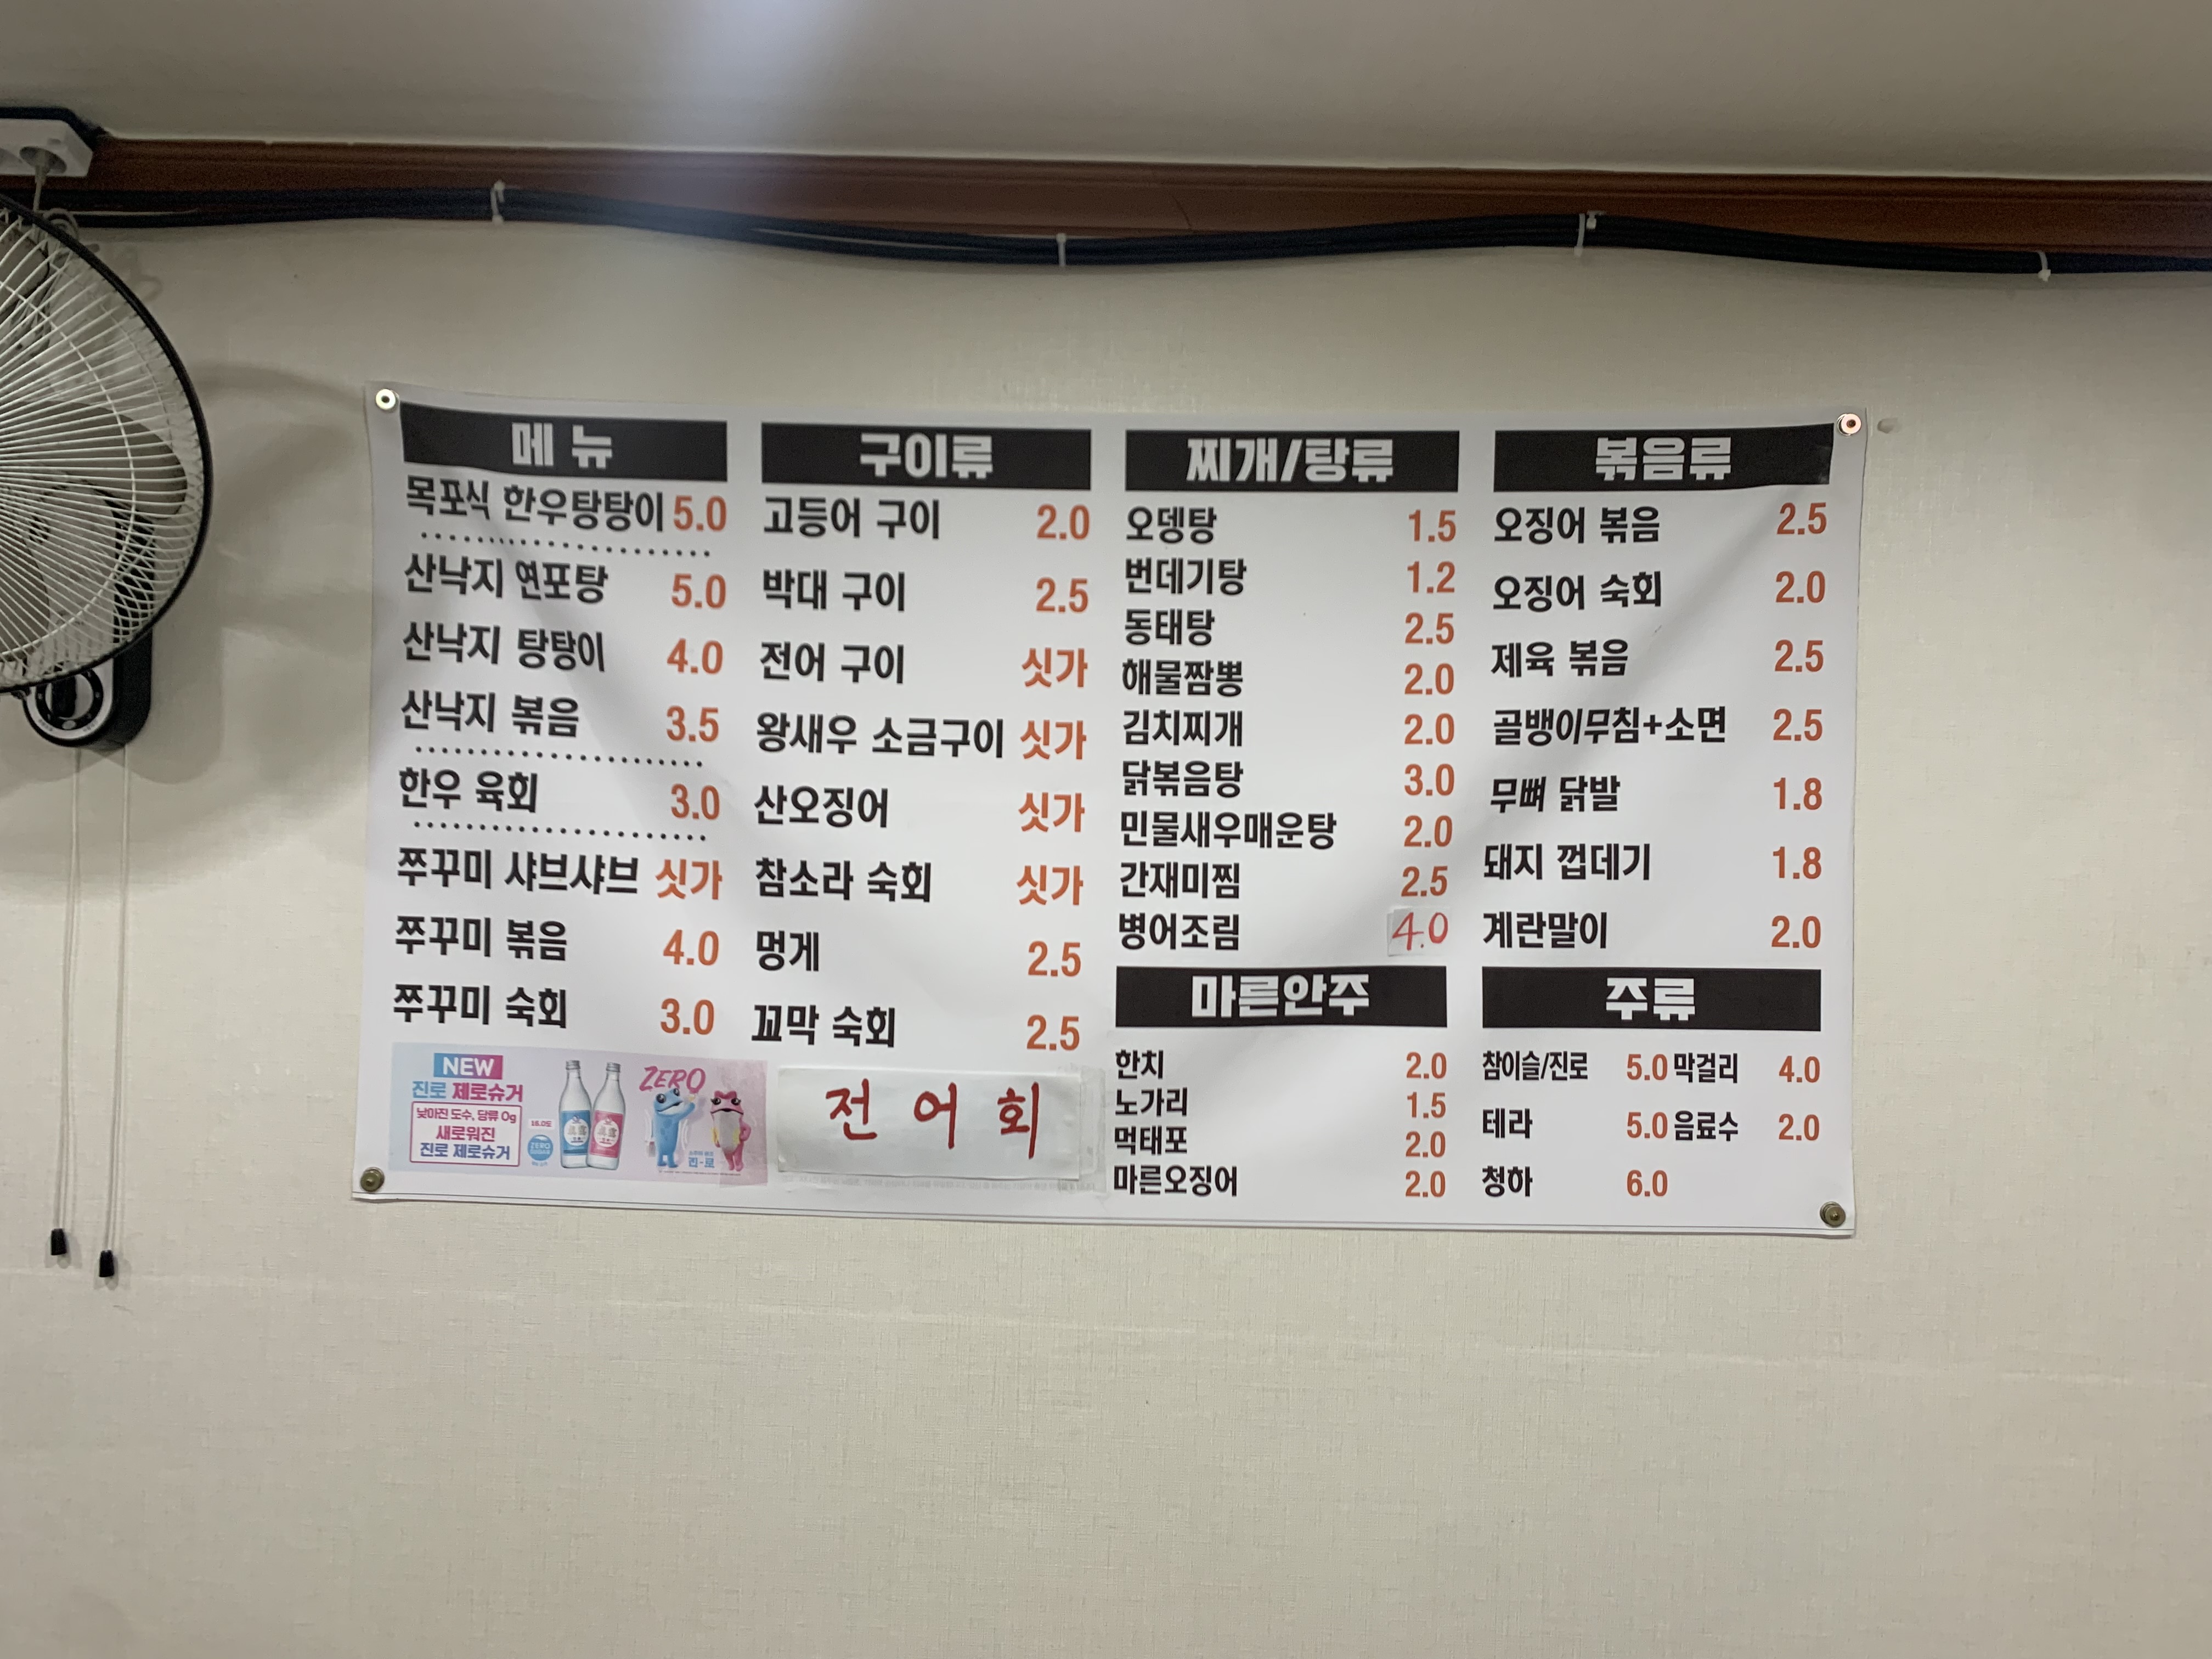 메 뉴
목포식 한우탕탕이 5.0
산낙지 연포탕 5.0
산낙지 탕탕이 4.0
산낙지 볶음 3.5
한우 육회 3.0
쭈꾸미 샤브샤브 싯가
쭈꾸미 볶음 4.0
쭈꾸미 숙회 3.0
NEW
진로 제로슈거
낮아진 도수, 당류 0g
새로워진
진로 제로슈거
16.0도
ZERO
ZERO
진-로
구이류
고등어 구이 2.0
박대 구이 2.5
전어 구이 싯가
왕새우 소금구이 싯가
산오징어 싯가
참소라 숙회 싯가
멍게 2.5
꼬막 숙회 2.5
전어회
찌개/탕류
오뎅탕 1.5
번데기탕 1.2
동태탕 2.5
해물짬뽕 2.0
김치찌개 2.0
닭볶음탕 3.0
민물새우매운탕 2.0
간재미찜 2.5
병어조림 4.0
마른안주
한치 2.0
노가리 1.5
먹태포 2.0
마른오징어 2.0
볶음류
오징어 볶음 2.5
오징어 숙회 2.0
제육 볶음 2.5
골뱅이무침+소면 2.5
무뼈 닭발 1.8
돼지 껍데기 1.8
계란말이 2.0
주류
참이슬/진로 5.0 막걸리 4.0
테라 5.0 음료수 2.0
청하 6.0